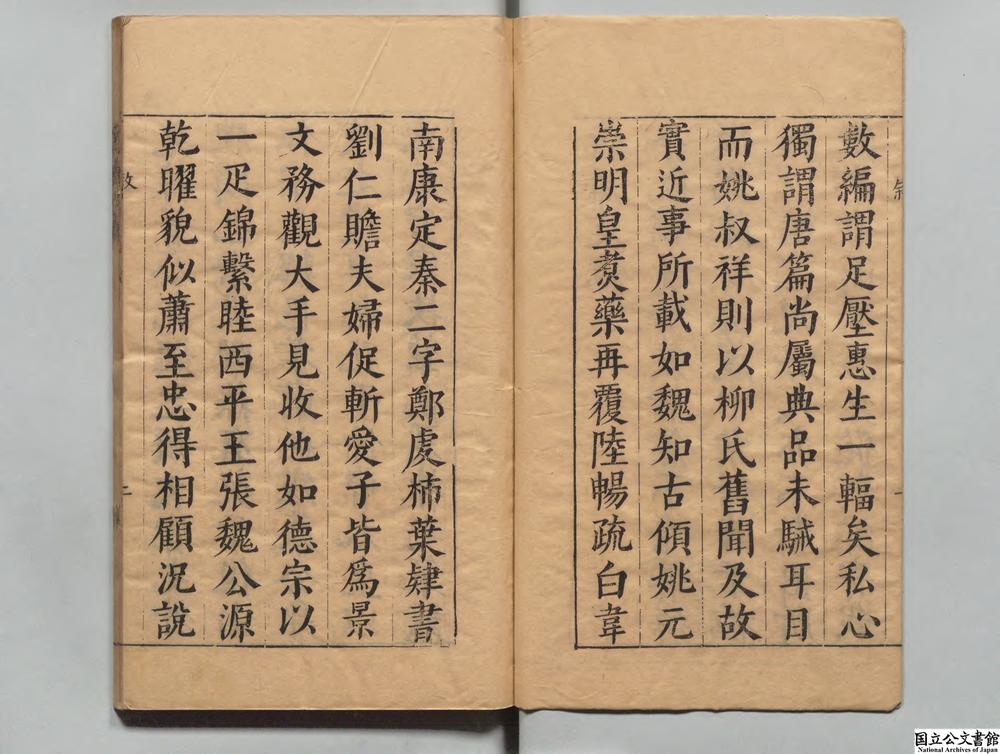 數編謂足壓惠生一輻矣私心
獨謂唐篇尚屬典品未駴耳目
而姚叔祥則以柳氏舊聞及故
實近事所載如魏知古傾姚元
崇明皇煑藥再覆陸暢疏白韋
南康定秦二字鄭虔柿葉肄書
劉仁贍夫婦促斬愛子皆爲景
文務觀大手見收他如德宗以
一疋錦繫睦西平王張魏公源
乾曜貌似蕭至忠得相顧況説
国立公文書館
National Archives of Japan